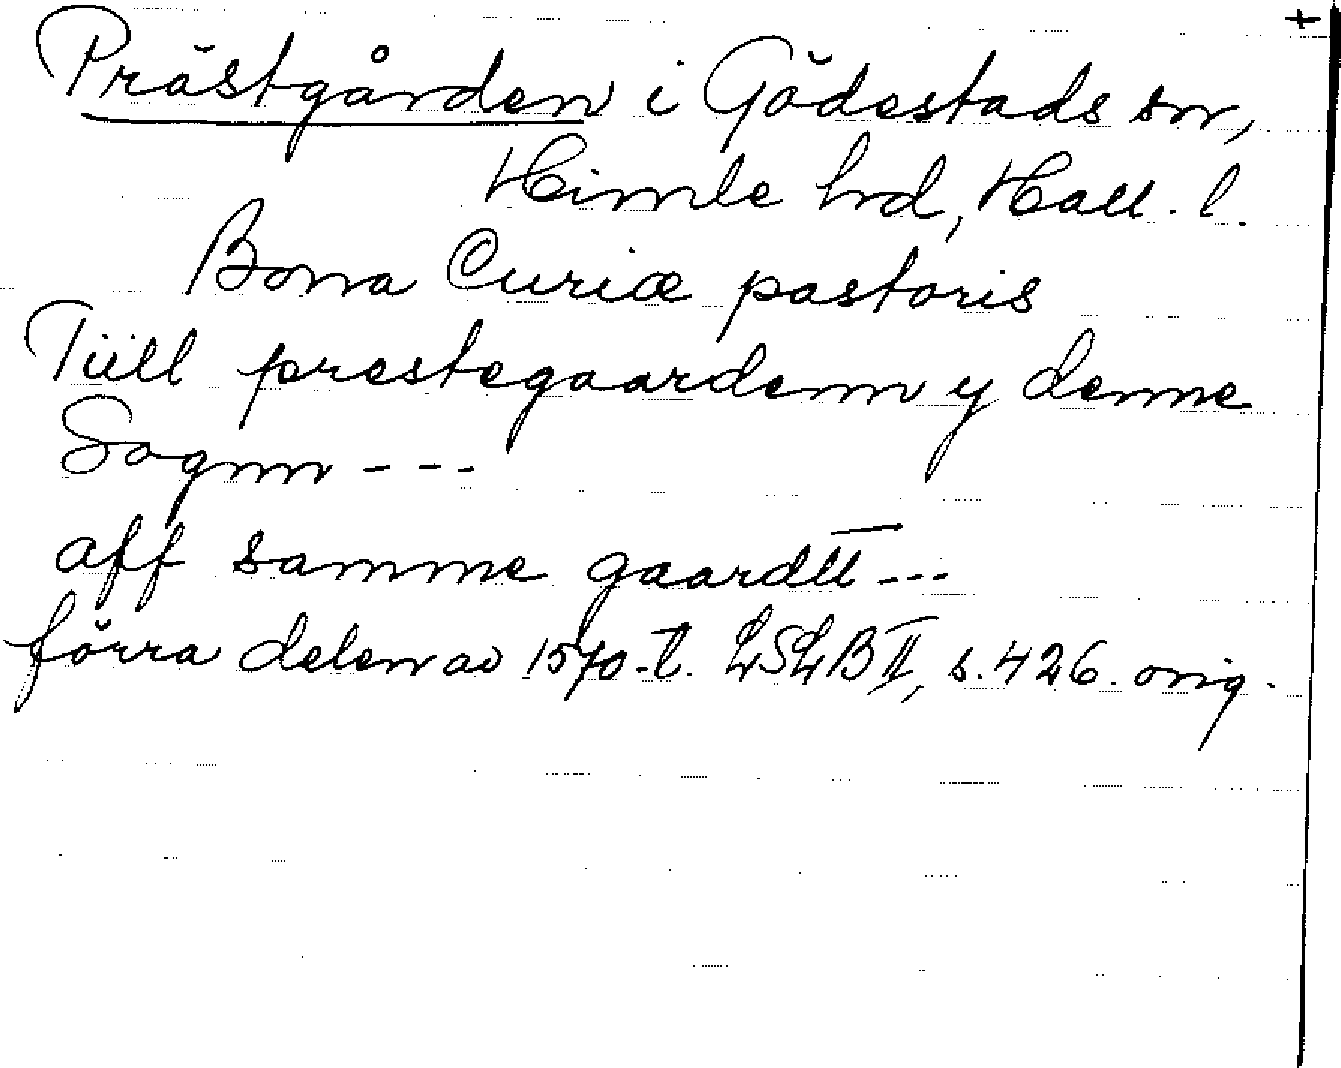 +
Prästgården i Gödestads sn,
Himle hrd, Hall. l.
Bona Curiæ pastoris
Tiill prestegaardenn y denne
Sognn - - -
aff samme gaardtt - - -
förra delen av 1570-t. LSLB II, s. 426. orig.